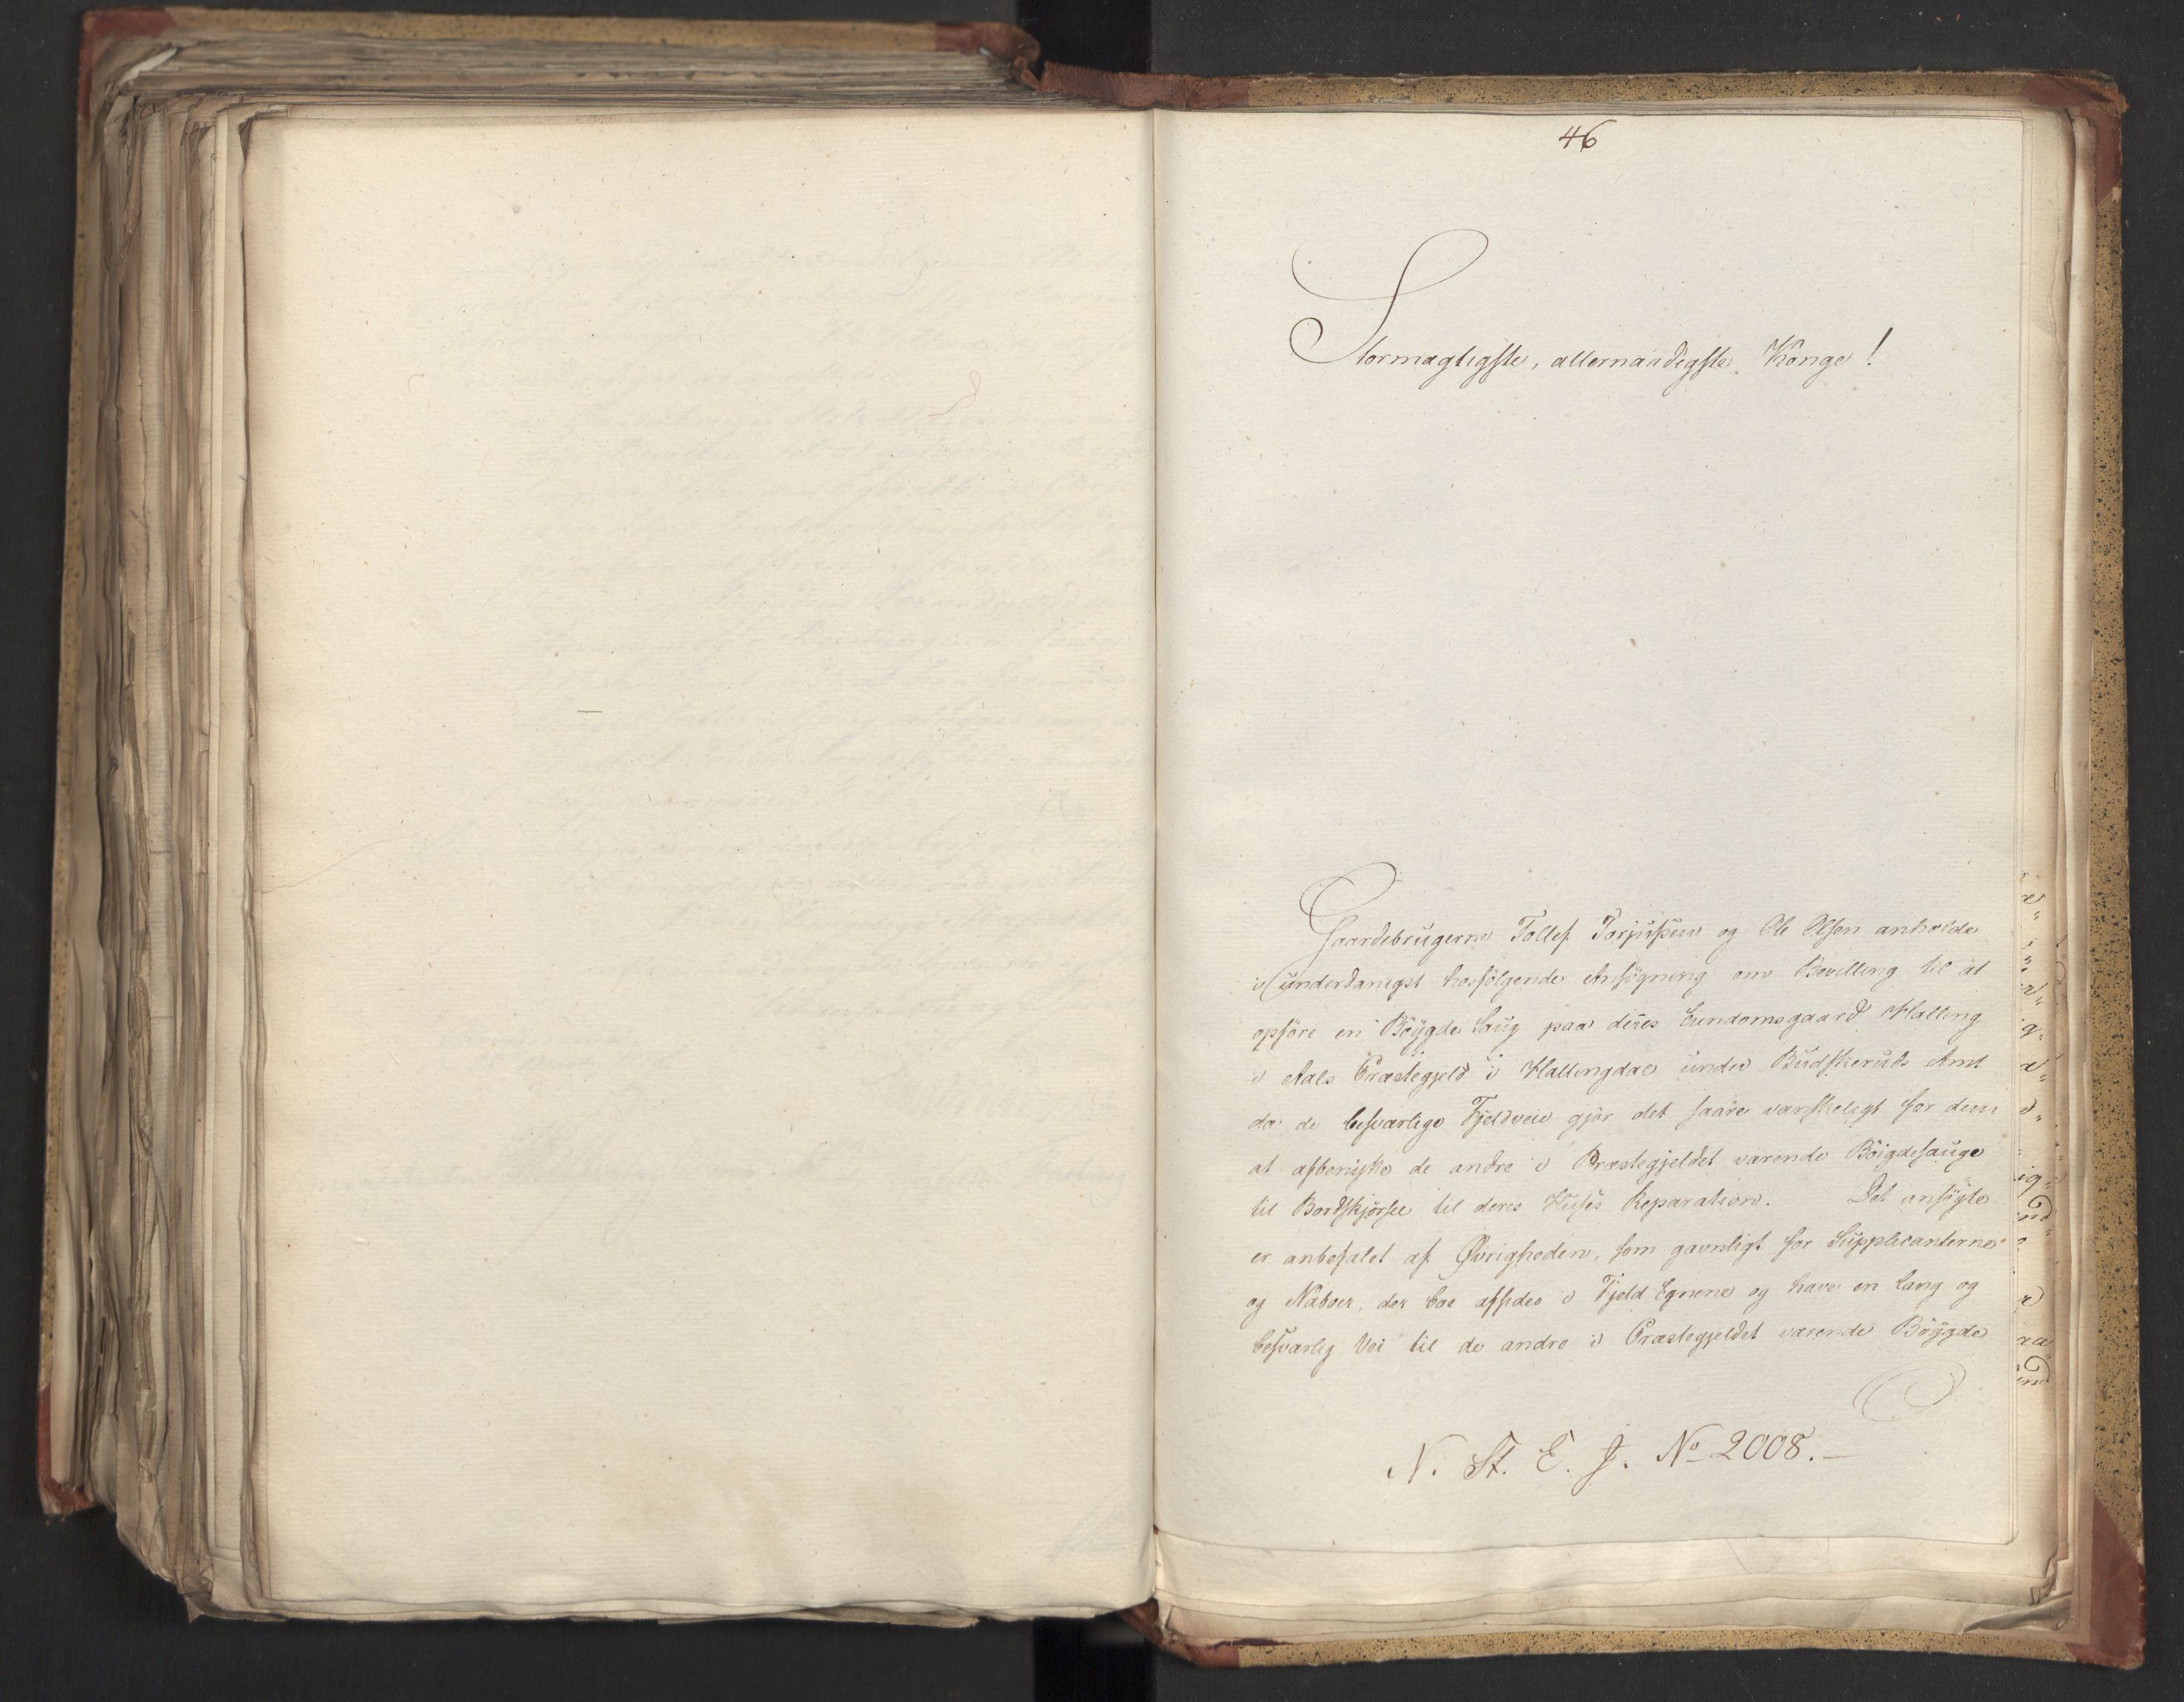 46
Stormægtigste, allernaadigste Konge!
Gaardebrugerne Tollef Torjusßen og Ole Olsen anholde
i underdanigst hosfölgende Ansögning om Bevilling til at
opföre en Böygde Saug paa deres Eiendomsgaard Halling
i Aals Præstegjeld i Hallingdal under Budskeruds Amt
da de besværlige Fjeldveie gjör det saare vanskeligt for dem
at afbenytte de andre i Præstegjeldet værende Böigdesauge
til Bordskjörsel til deres Huses Reparation. Det ansögte
er anbefalet af Øvrigheden, som gavnligt for Supplicanterne
og Naboer, der boe afsides i Fjeld Egnene og have en lang og
besværlig Vei til de andre i Præstegjeldet værende Böygde
N. St. E. J. No 2008.—